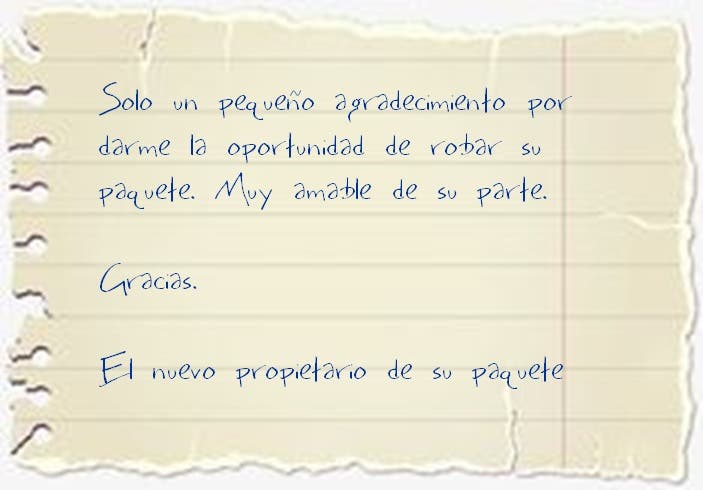 Solo un pequeño agradecimiento por
darme la oportunidad de robar su
paquete. Muy amable de su parte.
Gracias.
El nuevo propietario de su paquete